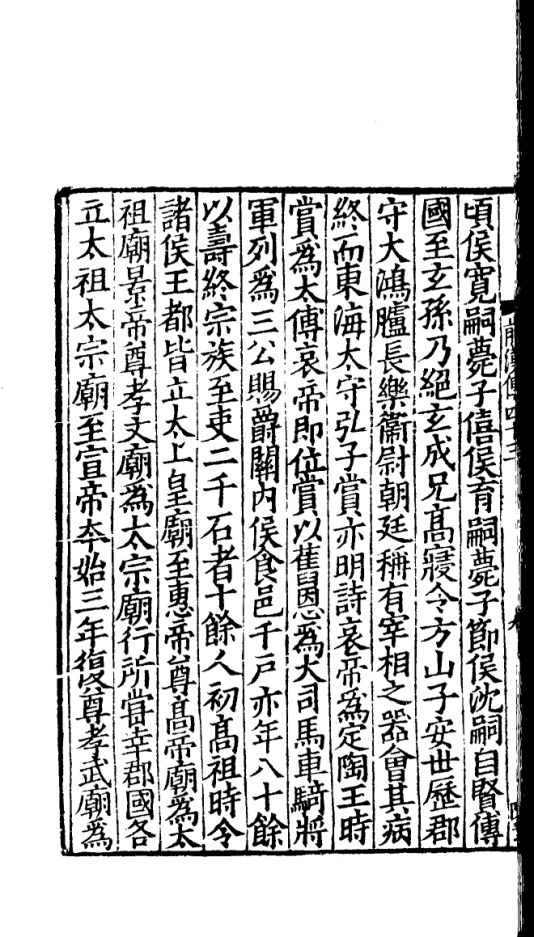 頃侯寬嗣薨子僖侯育嗣薨子節侯沈嗣自賢傳
國至玄孫乃絕玄成兄髙寢令方山子安世歷郡
守大鴻臚長樂衞尉朝廷稱有宰相之器㑹其病
終而東海太守弘子賞亦明詩哀帝爲定陶王時
賞爲太傅哀帝即位賞以舊恩爲大司馬車騎將
軍列爲三公賜爵關內侯食邑千戸亦年八十餘
以壽終宗族至吏二千石者十餘人初髙祖時令
諸侯王都皆立太上皇廟至惠帝尊髙帝廟爲太
祖廟景帝尊孝文廟爲太宗廟行所嘗幸郡國各
立太祖太宗廟至宣帝本始三年復尊孝武廟爲